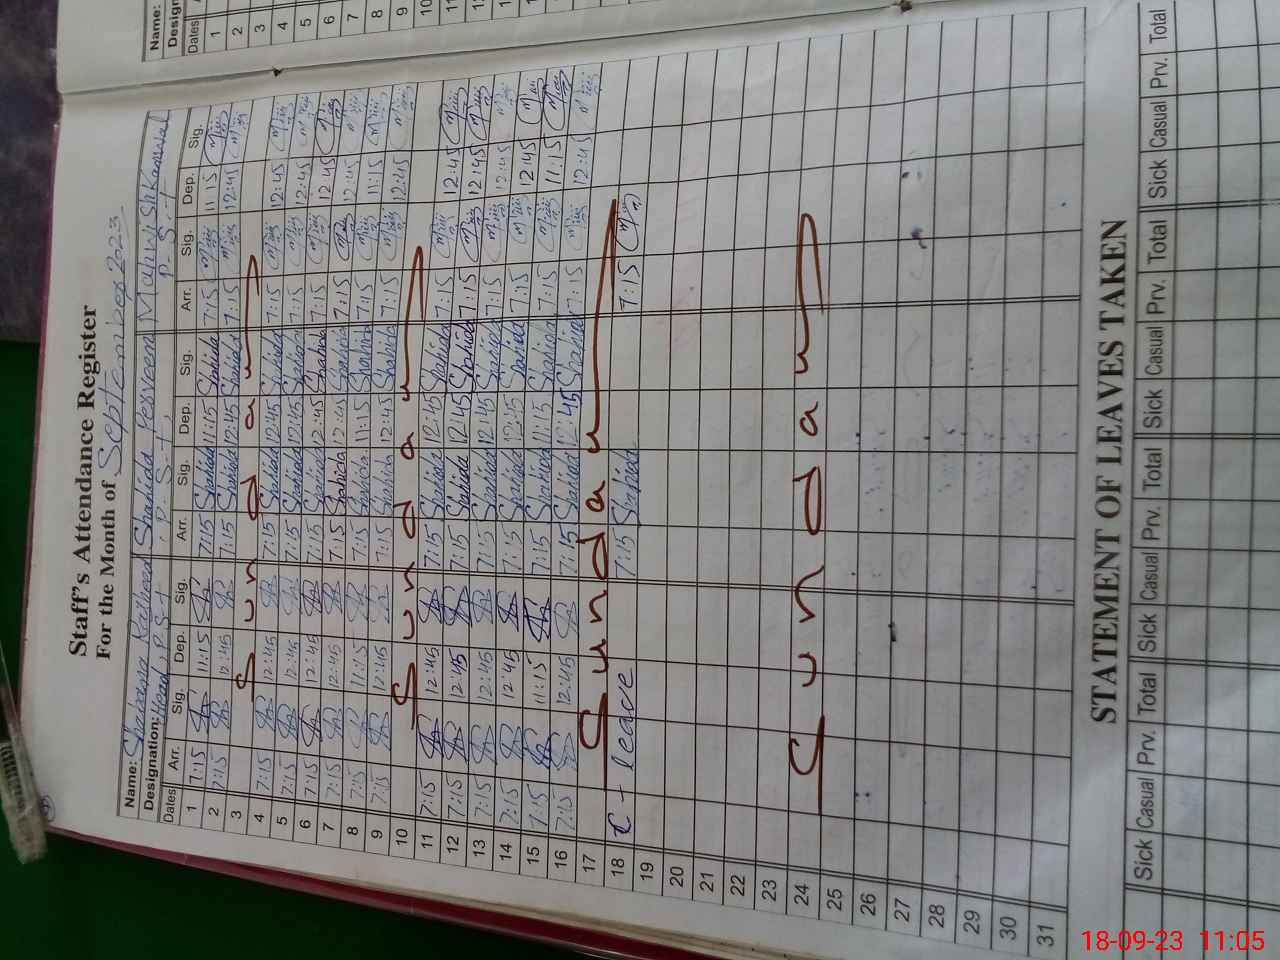 Staff's Attendance Register
For the Month of September 2023
Name: Shabana Rasheed Shahida Perveen Mahwish Kanwal
Designation: Head, P.S.T P.S.T, P.S.T
Dates Arr. Sig. Dep. Sig. Arr. Sig. Dep. Sig. Arr. Sig. Dep. Sig.
1 7:15 11:15 7:15 Shahida 11:15 Shahida 7:15 11:15
2 7:15 12:45 7:15 Shahida 12:45 Shahida 7:15 12:45
3 Sunday
4 7:15 12:45 7:15 Shahida 12:45 Shahida 7:15 12:45
5 7:15 12:45 7:15 Shahida 12:45 Shahida 7:15 12:45
6 7:15 12:45 7:15 Shahida 12:45 Shahida 7:15 12:45
7 7:15 12:45 7:15 Shahida 12:45 Shahida 7:15 12:45
8 7:15 11:15 7:15 Shahida 11:15 Shahida 7:15 11:15
9 7:15 12:45 7:15 Shahida 12:45 Shahida 7:15 12:45
10 Sunday
11 7:15 12:45 7:15 Shahida 12:45 Shahida 7:15 12:45
12 7:15 12:45 7:15 Shahida 12:45 Shahida 7:15 12:45
13 7:15 12:45 7:15 Shahida 12:45 Shahida 7:15 12:45
14 7:15 12:45 7:15 Shahida 12:45 Shahida 7:15 12:45
15 7:15 11:15 7:15 Shahida 11:15 Shahida 7:15 11:15
16 7:15 12:45 7:15 Shahida 12:45 Shahida 7:15 12:45
17 Sunday
18 C - leave 7:15 Shahida 7:15
19
20
21
22
23
24 Sunday
25
26
27
28
29
30
31
STATEMENT OF LEAVES TAKEN
Sick Casual Prv. Total Sick Casual Prv. Total Sick Casual Prv. Total Sick Casual Prv. Total
Name:
Design
Dates
1
2
3
4
5
6
7
8
9
10
11
12
13
14
15
16
17
18-09-23 11:05